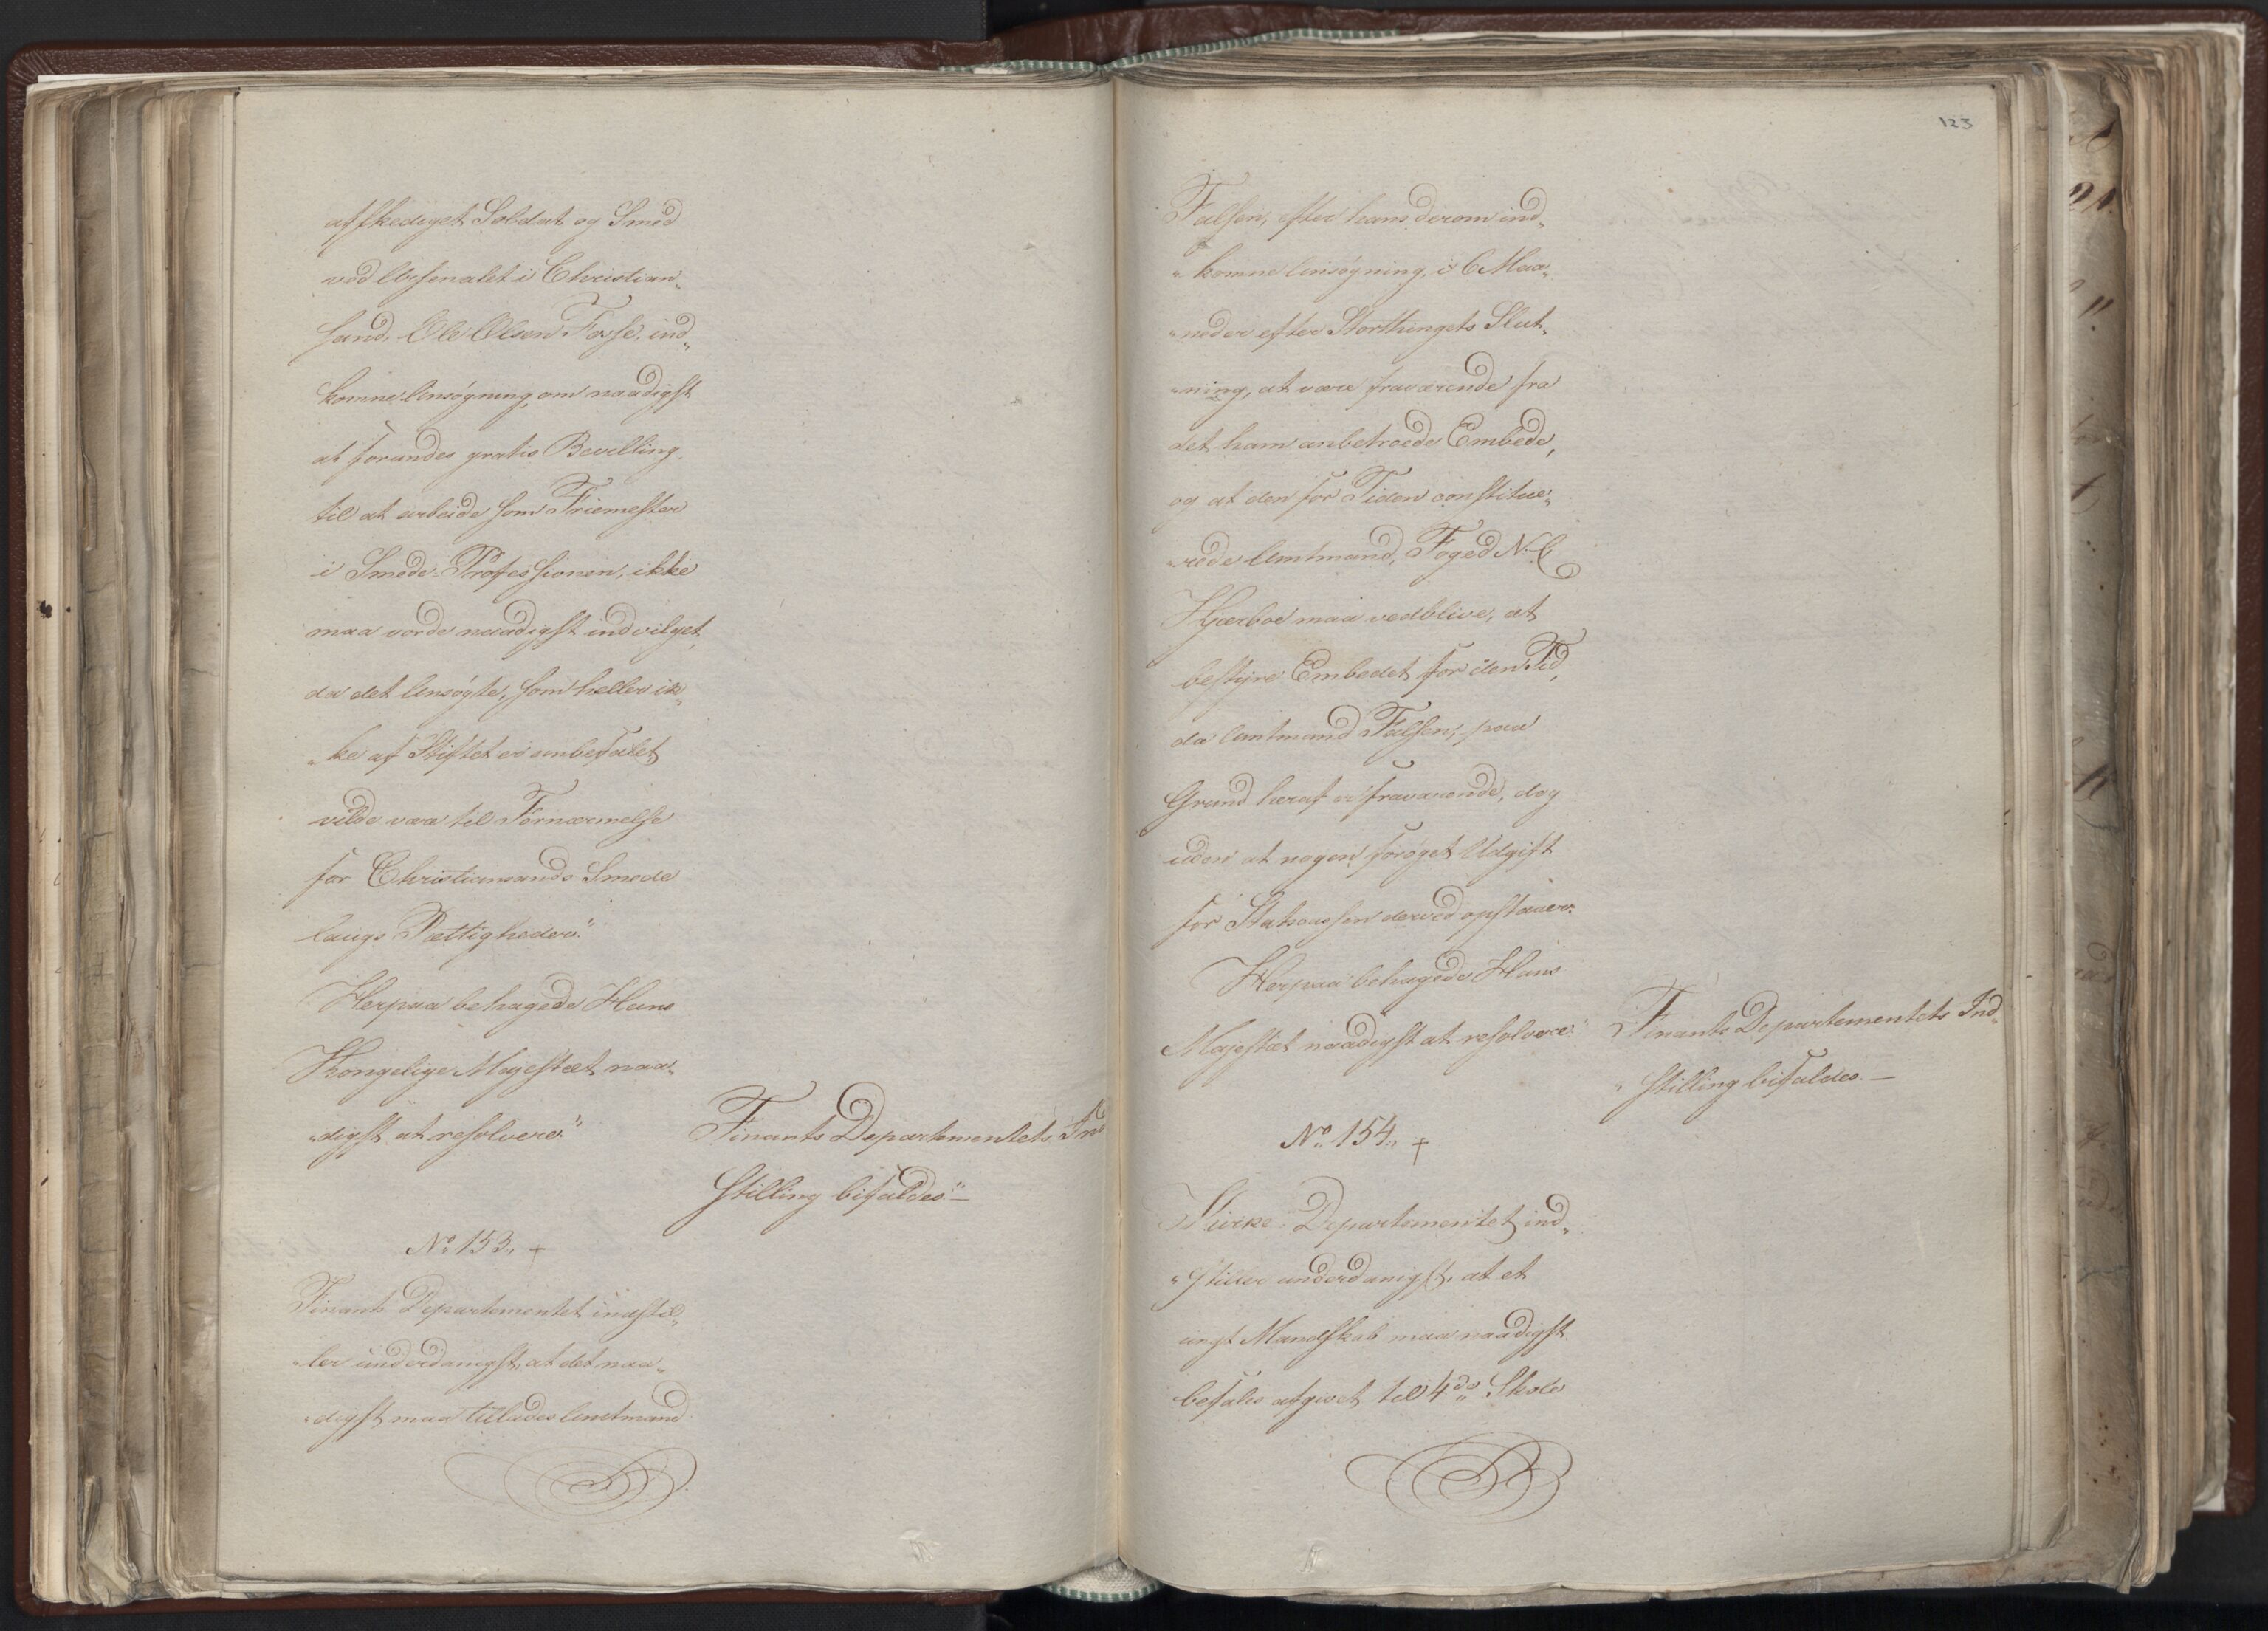 affskediget Soldat og Smed
ved Arsenalet i Christian„
sand, Ole Olsen Fosse, ind„
komne Ansøgning om naadigst
at forundes gratis Bevilling
til at arbeide som Friemester
i Smede-Professionen, ikke
maa vorde naadigst indvilget,
da det Ansøgte, som heller ik„
„ke af Stiftet er anbefalet
vilde være til Fornærmelse
for Christiansands Smede
laugs Rettigheder."
Herpaa behagede Hans
Kongelige Majestæt naa„
„digst at resolvere:"
Finants Departementets Ind
stilling bifaldes."—
No 153. +
Finants Departementet indstil„
„ler underdanigst, at det naa„
„digst maa tillades Amtmand
123
Falsen, efter hans derom ind„
„komne Ansøgning, i 6 Maa„
„neder efter Storthingets Slut„
„ning, at være fraværende fra
det ham anbetroede Embede,
og at den for Tiden constitue„
„rede Amtmand, Foged N. C.
Hjerboe maa vedblive, at
bestyre Embedet for den Tid,
da Amtmand Falsen, paa
Grund heraf er fraværende, dog
uden at nogen forøget Udgift
for Statscassen derved opstaaer.
Herpaa behagede Hans
Majestæt naadigst at resolvere:"
Finants Departementets Ind„
„stilling bifaldes.—
No 154. +
Kirke-Departementet ind„
„stiller underdanigst, at et
ungt Mandskab maa naadigst
befales afgivet til 4de Skole